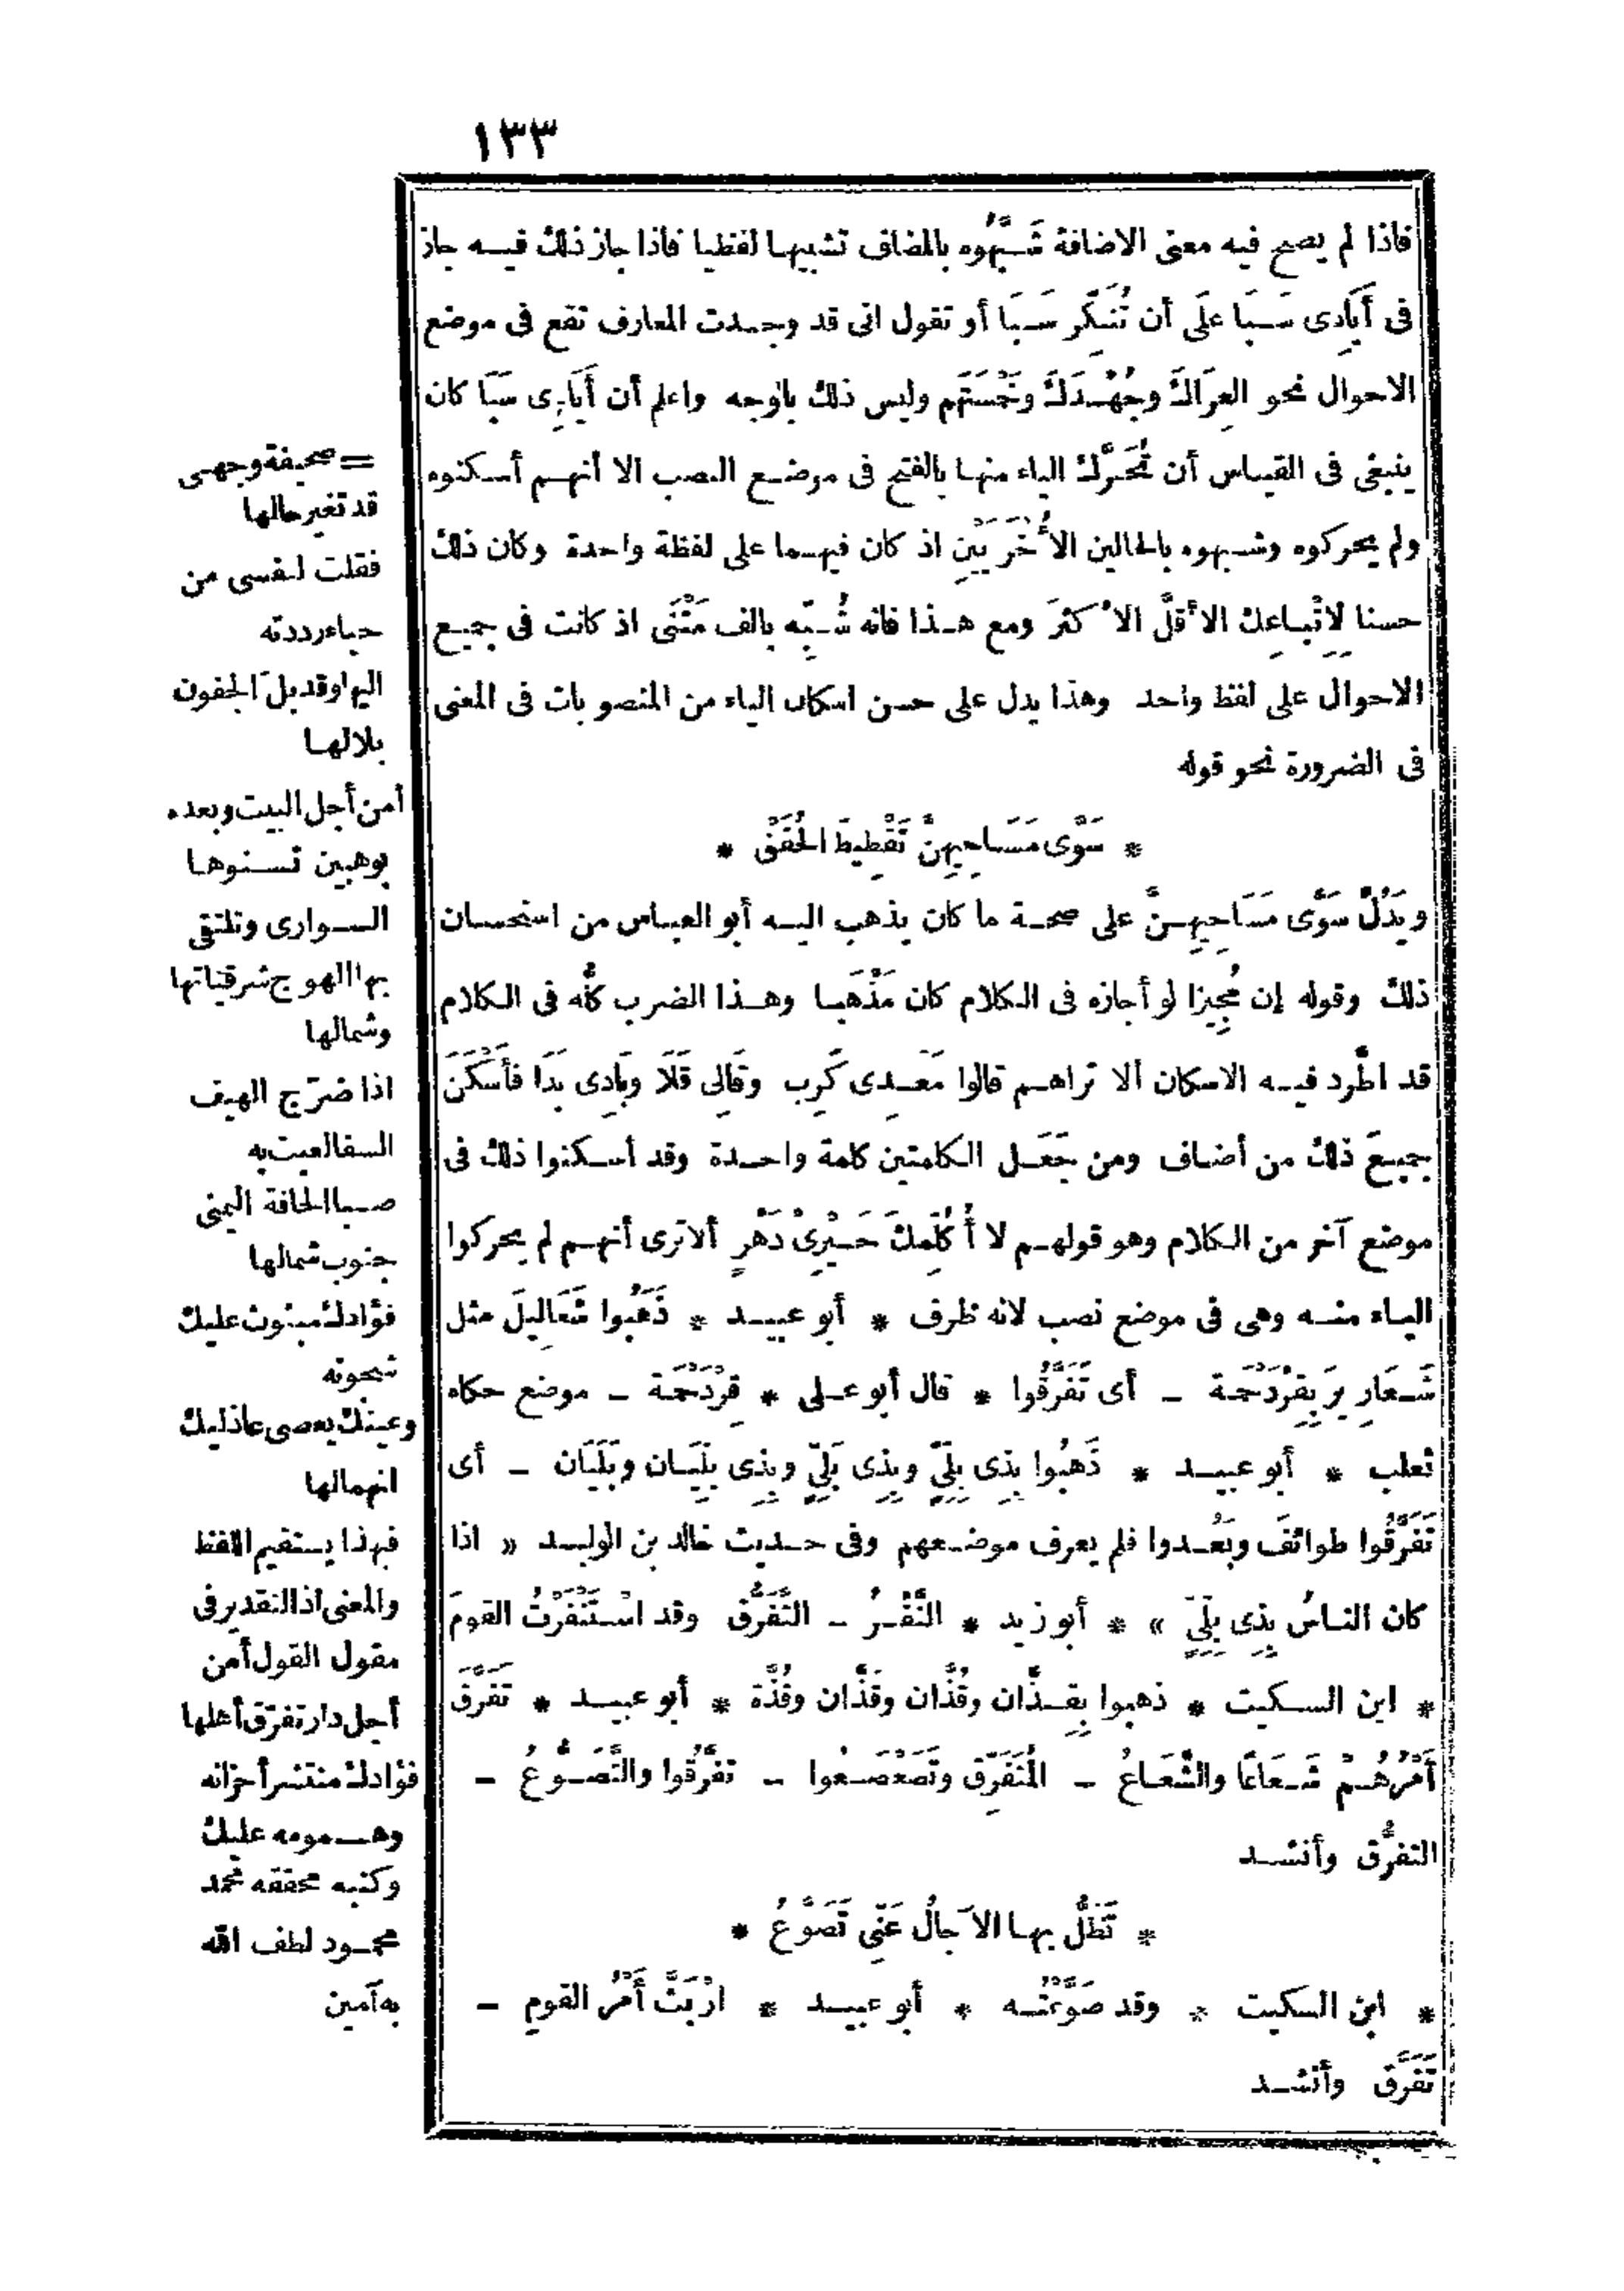 ١٣٣
فاذا لم يصح فيه معنى الاضافة شَبَّهُوه بالمضاف تشبيها لفظيا فاذا جاز ذلك فيه جاز
فى أَيَادِى سَبَا علَى أن تُنَكِّر سَبَا أو تقول انى قد وجدت المعارف تقع فى موضع
الاحوال نحو العِرَاكَ وجُهْدَكَ وخَمْسَتَهم وليس ذلك بالوجه واعلم أن أَيَادِى سَبَا كان
ينبغى فى القياس أن تُحَرَّك الياء منها بالفتح فى موضع النصب الا أنهم أسكنوه
ولم يحركوه وشبهوه بالحالين الأُخْرَيَيْنِ اذ كان فيهما على لفظة واحدة وكان ذلك
حسنا لِاتْباعِك الأَقلَّ الأَكثرَ ومع هذا فانه شُبِّه بالف مَثْنَى اذ كانت فى جميع
الاحوال على لفظ واحد وهذا يدل على حسن اسكان الياء من المنصوبات فى المعنى
فى الضرورة نحو قوله
* سَوَّى مَسَاحِيهِنَّ تَقْطِيطَ الحُقَقْ *
ويَدُلُّ سَوَّى مَسَاحِيهِنَّ على صحة ما كان يذهب اليه أبو العباس من استحسان
ذلك وقوله إن مُجِيزا لو أجازه فى الكلام كان مَذْهَبا وهذا الضرب كلُّه فى الكلام
قد اطَّرد فيه الاسكان ألا تراهم قالوا مَعْدِى كَرِب وقَالِى قَلَا وبَادِى بَدَا فأَسْكَنَ
جميعَ ذلك من أضاف ومن جَعَل الكلمتين كلمة واحدة وقد أسكنوا ذلك فى
موضع آخر من الكلام وهو قولهم لا أُكَلِّمكَ حَيْرِىْ دَهْرٍ ألا ترى أنهم لم يحركوا
الياء منه وهى فى موضع نصب لانه ظرف * أبو عبيد * ذَهَبُوا شَعَالِيلَ مثل
شَعَارِيرَ بِقِرْدَحْمة - أى تَفَرَّقُوا * قال أبو على * قِرْدَحْمة - موضع حكاه
ثعلب * أبو عبيد * ذَهَبُوا بِذِى بِلِيٍّ وبِذِى بَلِيٍّ وبِذِى بِلِيَّان وبَلَيَان - أى
تَفَرَّقُوا طوائفَ وبَعُدوا فلم يعرف موضعهم وفى حديث خالد بن الوليد « اذا
كان الناسُ بِذِى بِلِيٍّ » * أبو زيد * النَّفْرُ - التَّفَرُّق وقد اسْتَنْفَرْتُ القومَ
* ابن السكيت * ذهبوا بِقِذَّان وقُذَّان وقَذَّان وقُذَّة * أبو عبيد * تَفَرَّقَ
أَمْرُهُمْ شَعَاعًا والشَّعَاعُ - المُتَفَرِّق وتَصَعْصَعُوا - تفَرَّقُوا والتَّصَوُّعُ -
التفرُّق وأنشد
* تَظَلُّ بها الآجالُ عَنِّى تَصَوَّعُ *
* ابن السكيت * وقد صَوَّعْتُه * أبو عبيد * ارْبَثَّ أَمْرُ القومِ -
تَفَرَّق وأنشد
= صحيفة وجهى
قد تغير حالها
فقلت لنفسى من
حياء رددته
اليها وقد بلّ الجفون
بلالها
أمن أجل البيت وبعده
بوهبين تسنوها
السوارى وتلتقى
بها الهوج شرقياتها
وشمالها
اذا ضرّج الهيف
السفا لعبت به
صبا الحافة اليمنى
جنوب شمالها
فؤادك مبثوث عليك
شجونه
وعينك يعصى عاذليك
انهمالها
فبهذا يستقيم اللفظ
والمعنى اذ التقدير فى
مقول القول أمن
أجل دار تفرّق أهلها
فؤادك منتشر أحزانه
وهمومه عليك
وكتبه محققه محمد
محمود لطف الله
به آمين